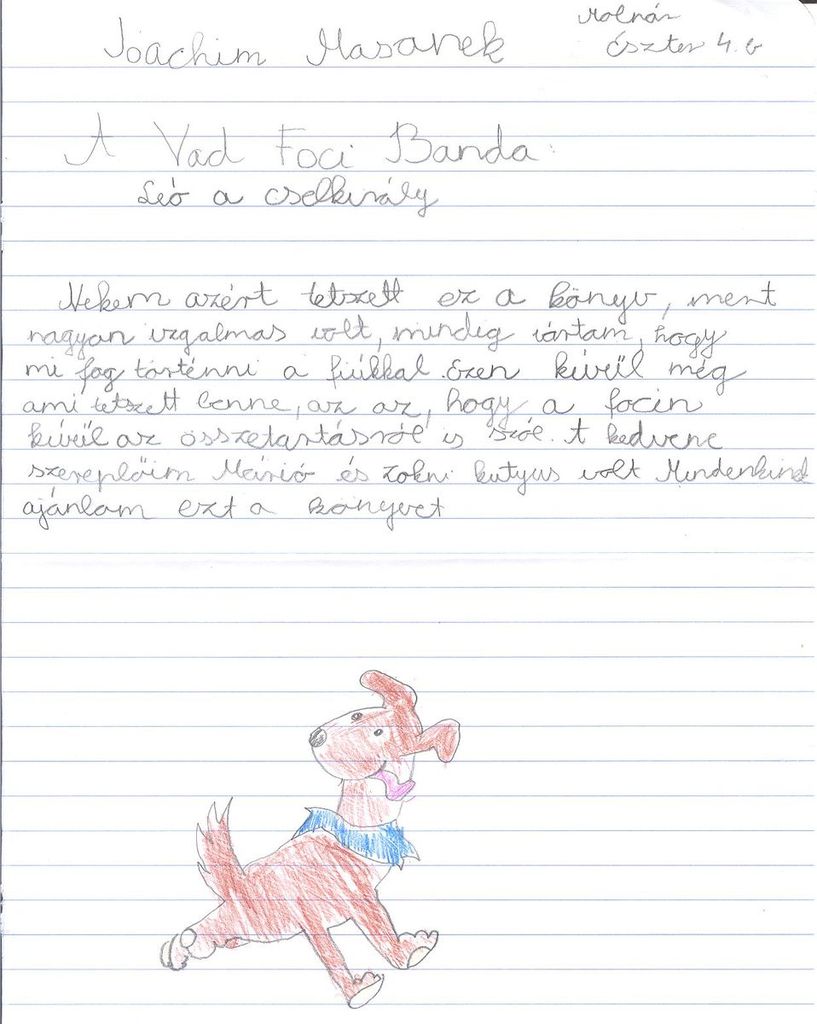 Joachim Masanek
Molnár
Eszter 4. b
A Vad Foci Banda:
Leó a cselkirály
Nekem azért tetszett ez a könyv, mert
nagyon izgalmas volt, mindig vártam, hogy
mi fog történni a fiúkkal. Ezen kívül még
ami tetszett benne, az az, hogy a focin
kívül az összetartásról is szól. A kedvenc
szereplőim Márió és Zokni kutyus volt Mindenkinek
ajánlom ezt a könyvet